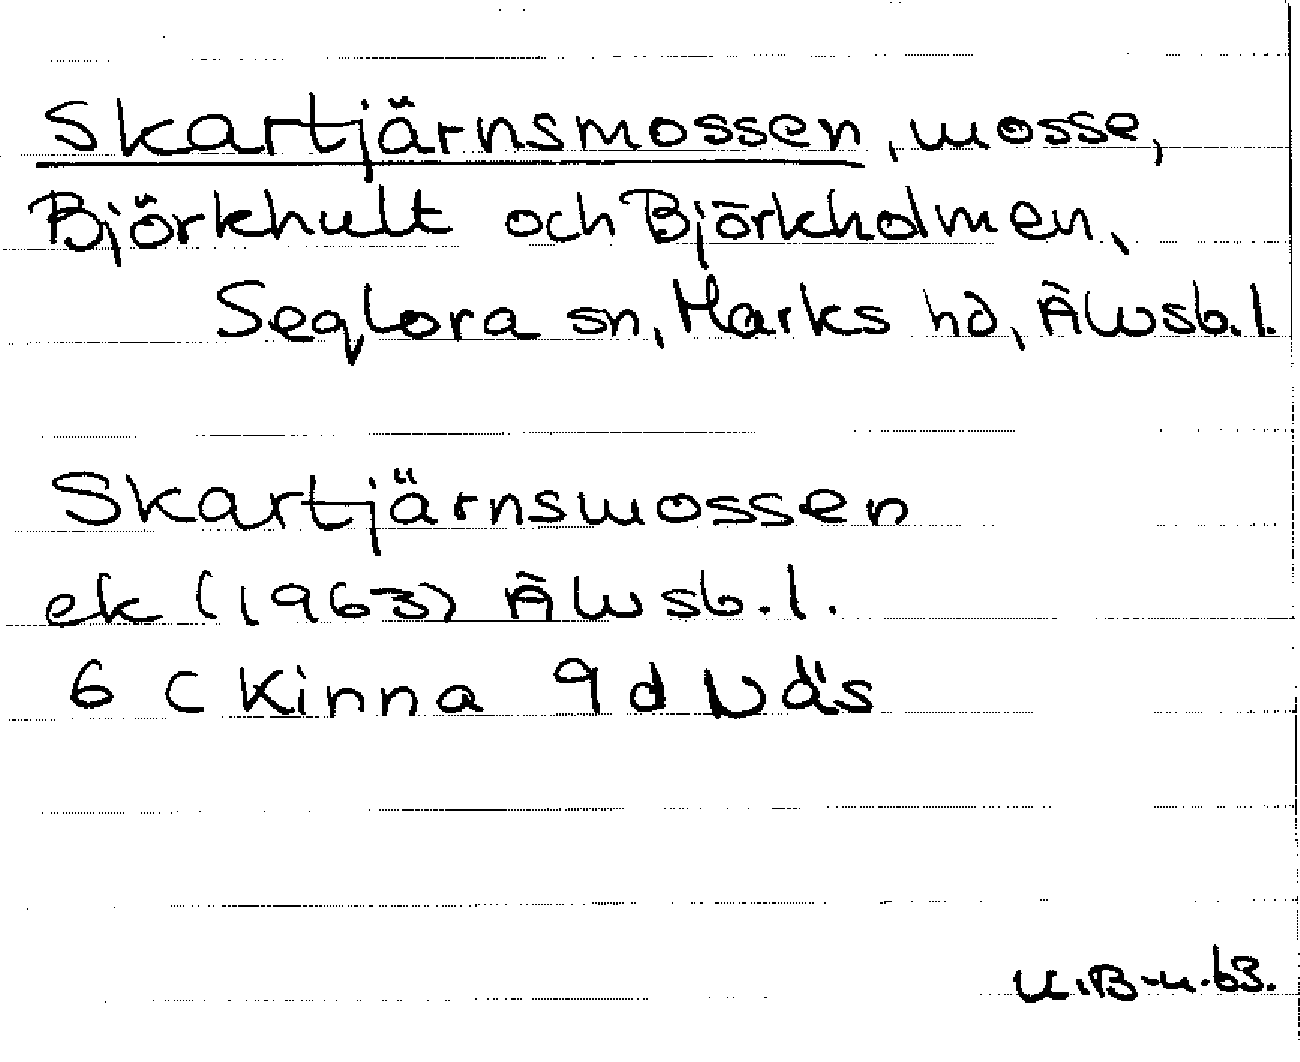 Skartjärnsmossen, mosse,
Björkhult och Björkholmen,
Seglora sn, Marks hd, Älvsb.l.
Skartjärnsmossen
ek (1963) Älvsb.l.
6 C Kinna 9 d
63.